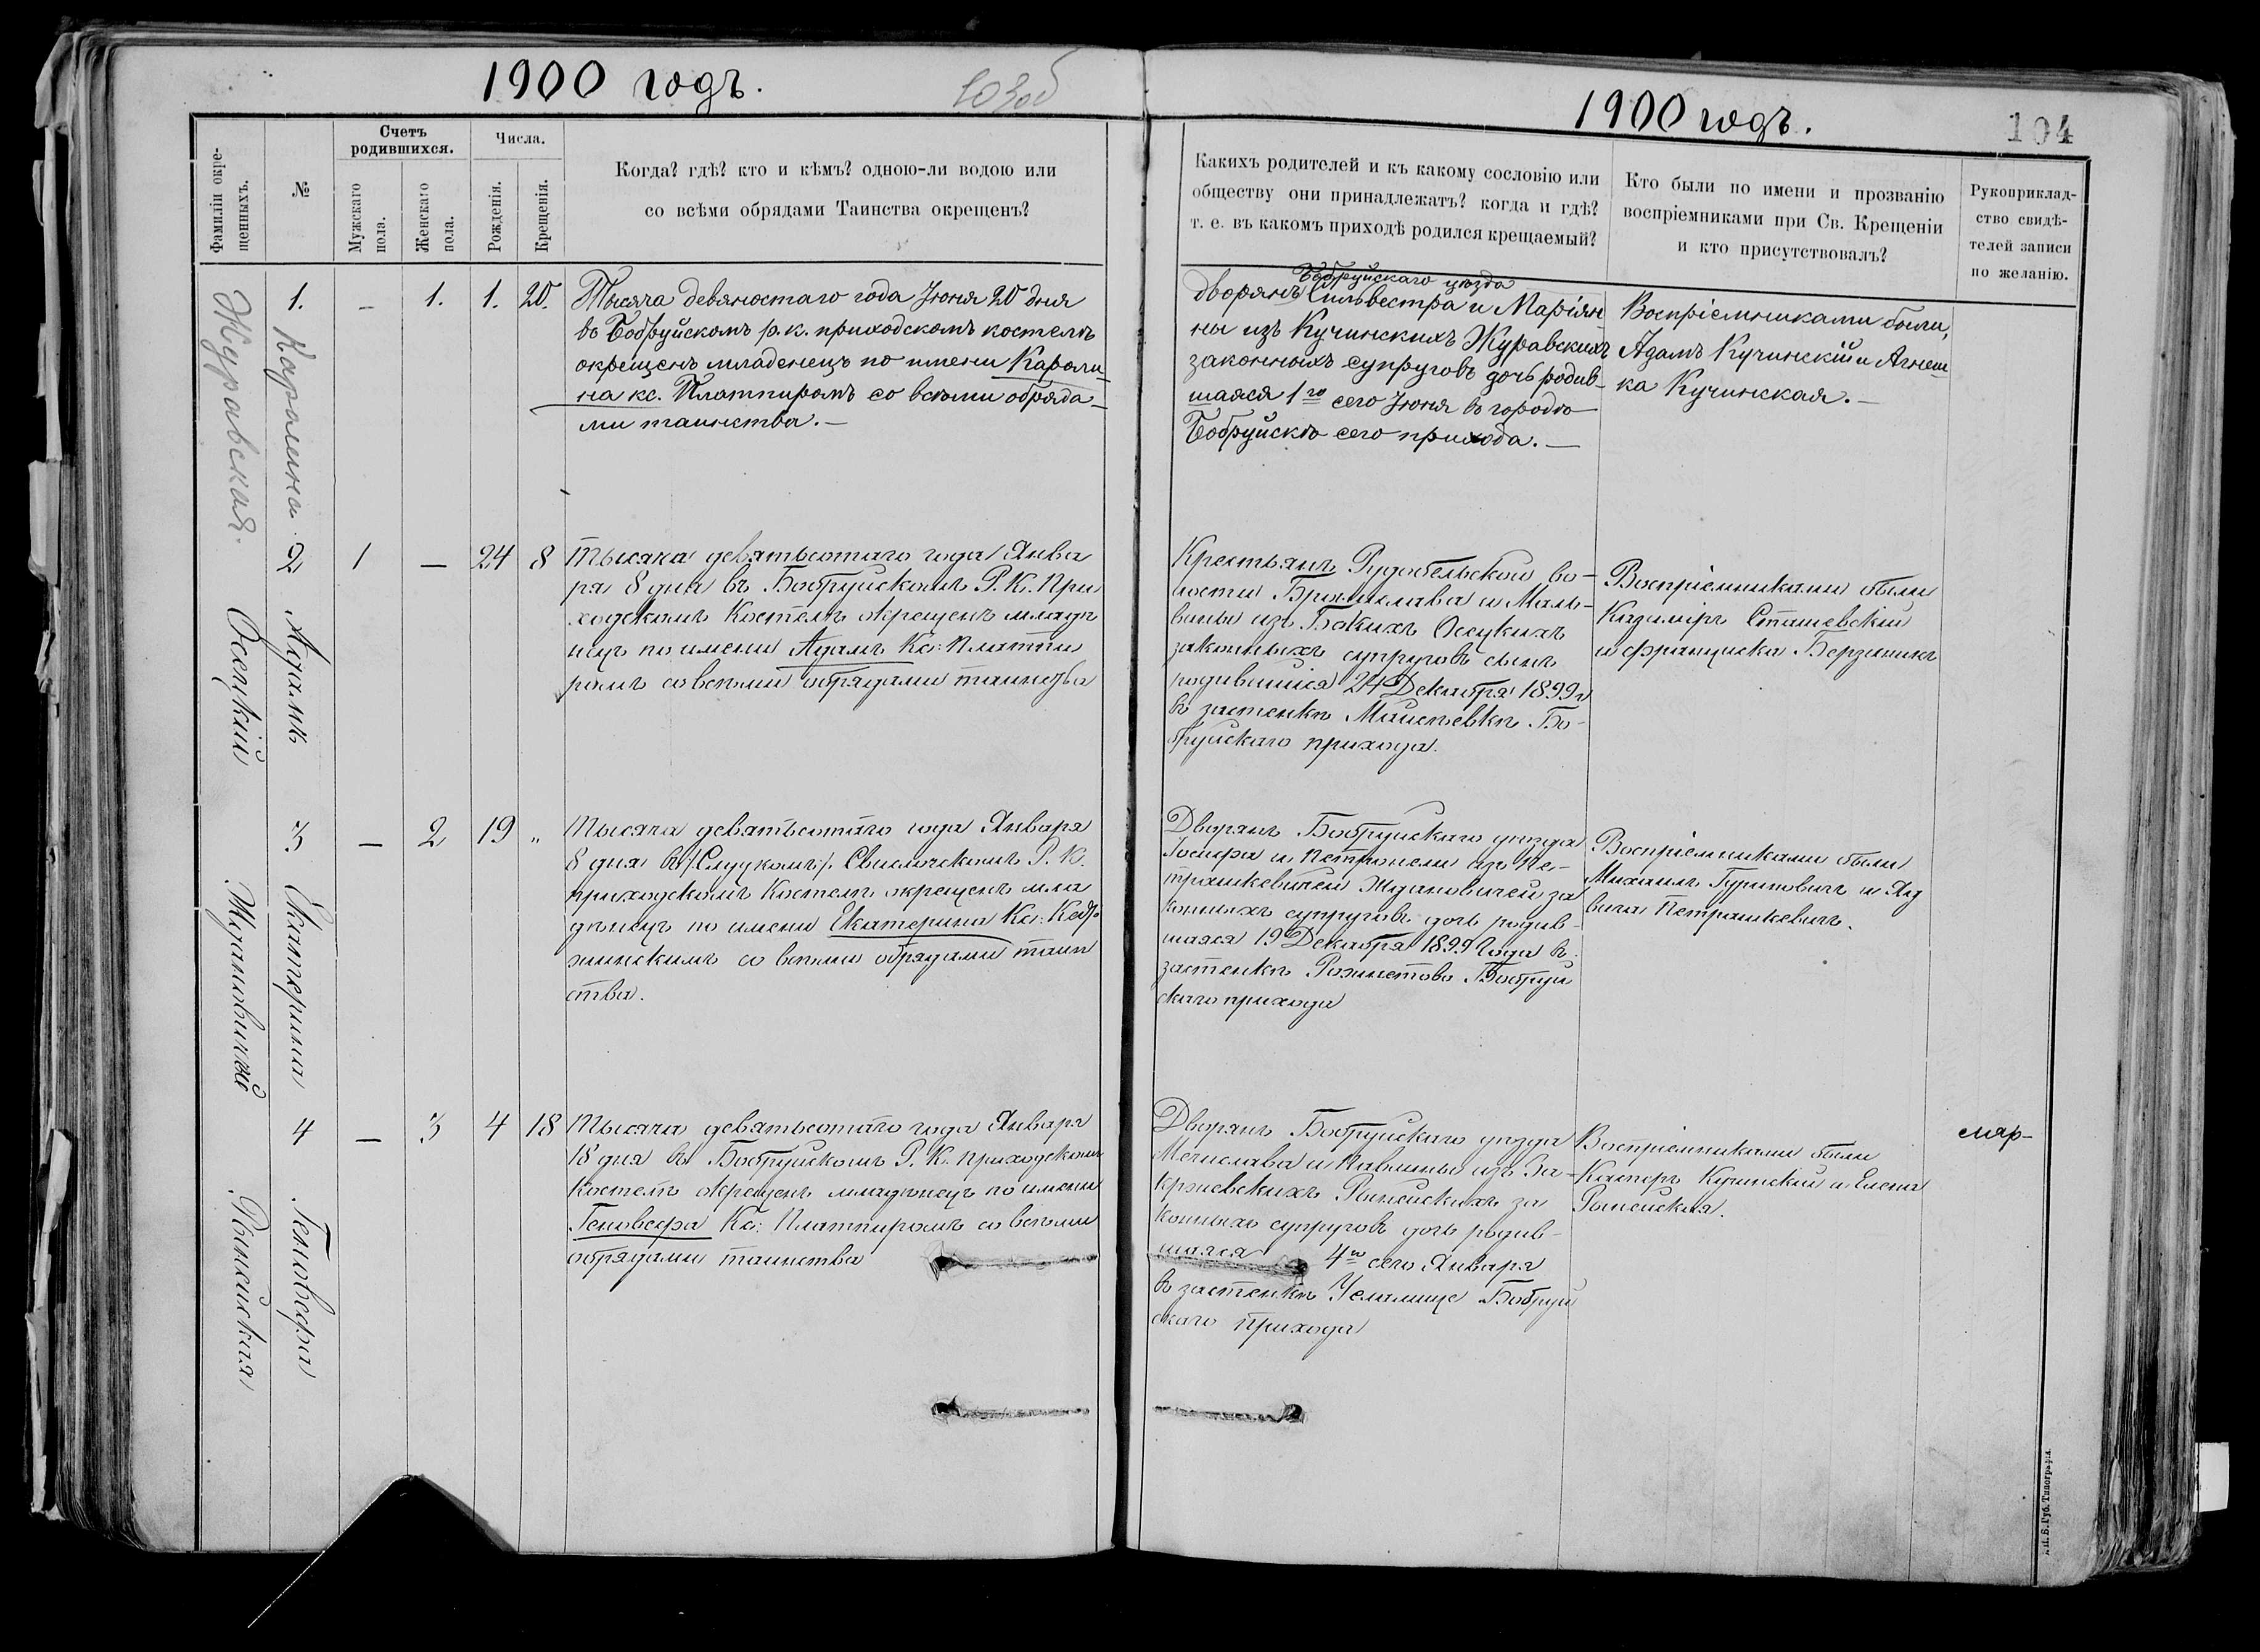 1900 годъ.
103об
Фамиліи окре-
щенныхъ.
№
Счетъ
родившихся.
Мужскаго
пола.
Женскаго
пола.
Числа.
Рожденія.
Крещенія.
Когда? гдѣ? кто и кѣмъ? одною-ли водою или
со всѣми обрядами Таинства окрещенъ?
Журавская.
1.
Каролина.
–
1.
1.
20.
Тысяча девяностаго года Іюня 20 дня
въ Бобруйскомъ р. к. приходскомъ костелѣ
окрещенъ младенецъ по имени Кароли-
на кс. Платпиромъ со всѣми обряда-
ми таинства. –
Осецкій
2
Адамъ
1
–
24
8
Тысяча девятьсотаго года Янва
ря 8 дня въ Бобруйскомъ Р. К. При
ходскомъ Костелѣ окрещенъ младе
нецъ по имени Адамъ Кс: Платпи
ромъ со всѣми обрядами таинства
Ждановичъ
3
Екатерина
–
2
19
„
Тысяча девятьсотаго года Января
8 дня въ /:Слуцкомъ:/ Свислочскомъ Р. К.
приходскомъ Костелѣ окрещенъ мла
денецъ по имени Екатерина Кс:
со всѣми обрядами таин
ства.
Рынейская
4
Геновефа
–
3
4
18
Тысяча девятьсотаго года Января
18 дня въ Бобруйскомъ Р. К. приходскомъ
Костелѣ окрещенъ младенецъ по имени
Геновефа Кс: Платпиромъ со всѣми
обрядами таинства
1900 годъ.
104
Какихъ родителей и къ какому сословію или
обществу они принадлежатъ? когда и гдѣ?
т. е. въ какомъ приходѣ родился крещаемый?
Кто были по имени и прозванію
воспріемниками при Св. Крещеніи
и кто присутствовалъ?
Рукоприклад-
ство свидѣ-
телей записи
по желанію.
Бобруйскаго уѣзда
дворянъ Сильвестра и Маріян-
ны изъ Кучинскихъ Журавскихъ
законныхъ супруговъ дочь родив-
шаяся 1го сего Іюня въ городѣ
Бобруйскѣ сего прихода. –
Воспріемниками были,
Адамъ Кучинскій и Агнеш-
ка Кучинская. –
Крестьянъ Рудобельской во-
лости Бронислава и Маль-
вины изъ Осецкихъ
законныхъ супруговъ сынъ
родившійся 24 Декабря 1899 г
въ застенкѣ Бо-
бруйскаго прихода.
Воспріемниками были
Казиміръ Сташевскій
и Франциска
Дворянъ Бобруйскаго уѣзда
Іосифа и Петронели изъ Пе-
трашкевичей Ждановичей за
конныхъ супруговъ дочь родив-
шаяся 19 Декабря 1899 года въ
застенкѣ Бобруй
скаго прихода
Воспріемниками были
Михаилъ Гуриновичъ и Яд
вига Петрашкевичъ.
Дворянъ Бобруйскаго уѣзда
Мечислава и Павлины изъ За-
кржевскихъ Рынейскихъ за
конныхъ супруговъ дочь родив-
шаяся 4го сего Января
въ застенкѣ Бобруй
скаго прихода
Воспріемниками были
Касперъ Кучинскій и Елена
Рынейская.